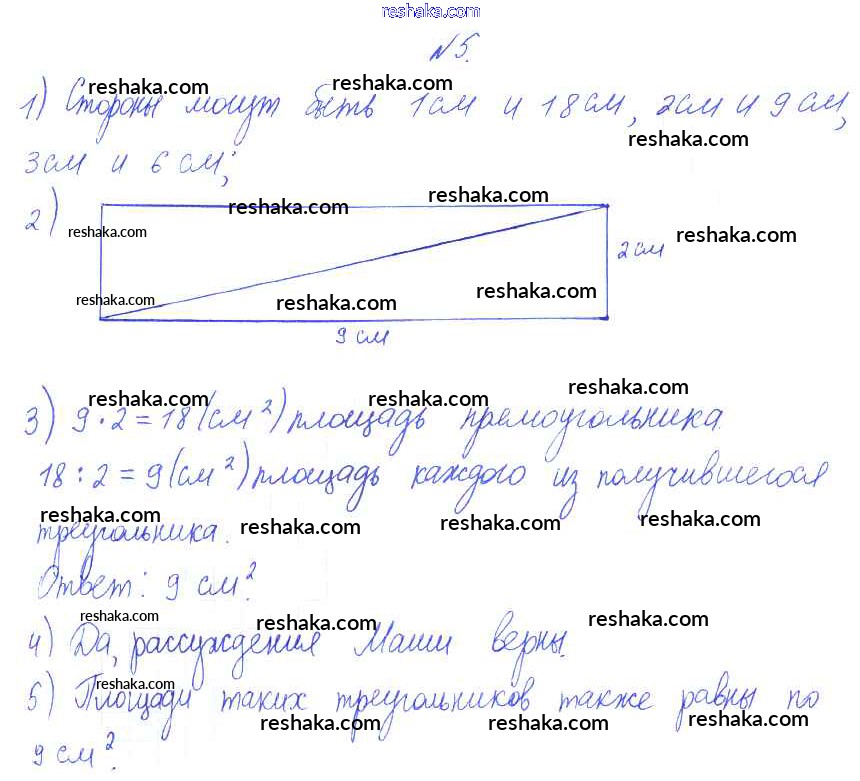 reshaka.com
№5.
reshaka.com reshaka.com
1) Стороны могут быть 1см и 18см, 2см и 9см,
reshaka.com
3см и 6 см;
2)
reshaka.com reshaka.com
reshaka.com reshaka.com
2см
reshaka.com reshaka.com reshaka.com
9 см
reshaka.com reshaka.com reshaka.com
3) 9·2=18(см²) площадь прямоугольника.
18:2=9(см²) площадь каждого из получившегося
reshaka.com reshaka.com reshaka.com reshaka.com
треугольника.
Ответ: 9 см².
reshaka.com reshaka.com reshaka.com
4) Да, рассуждения Маши верны.
reshaka.com
5) Площади таких треугольников также равны по
reshaka.com reshaka.com reshaka.com
9 см².